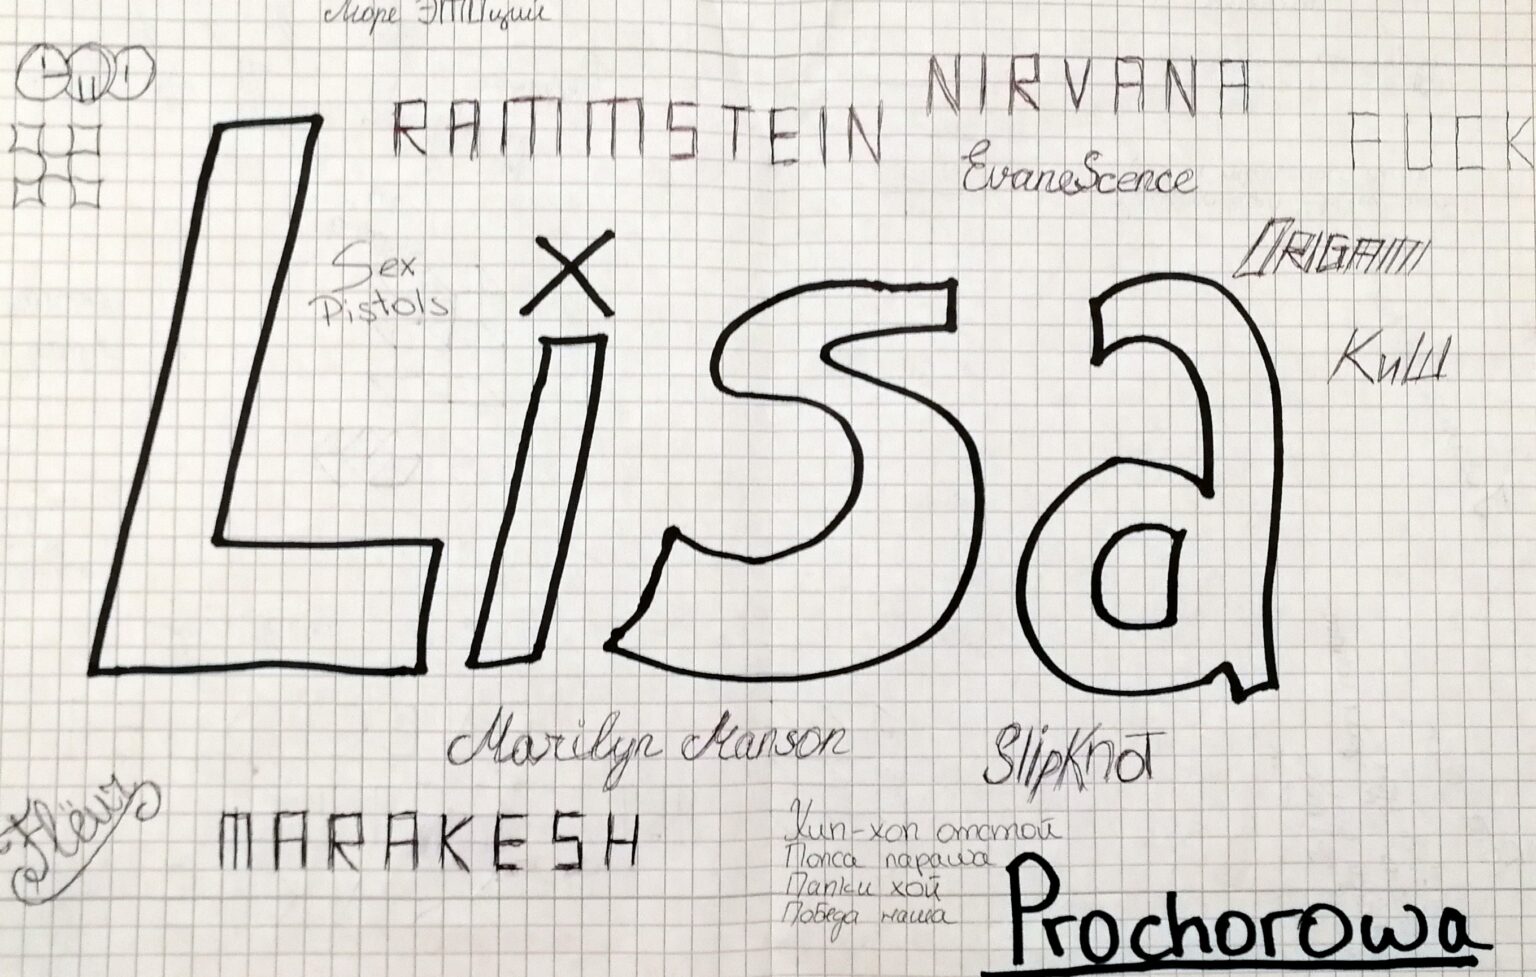 Море ЭМОций
NIRVANA
RAMMSTEIN
FUCK
EvaneScence
ORIGAMI
Sex
Pistols
КиШ
Lisa
Marilyn Manson
SlipKnoT
Flëur
MARAKESH
Хип-хоп отстой
Попса параша
Панки хой
Победа наша
Prochorowa